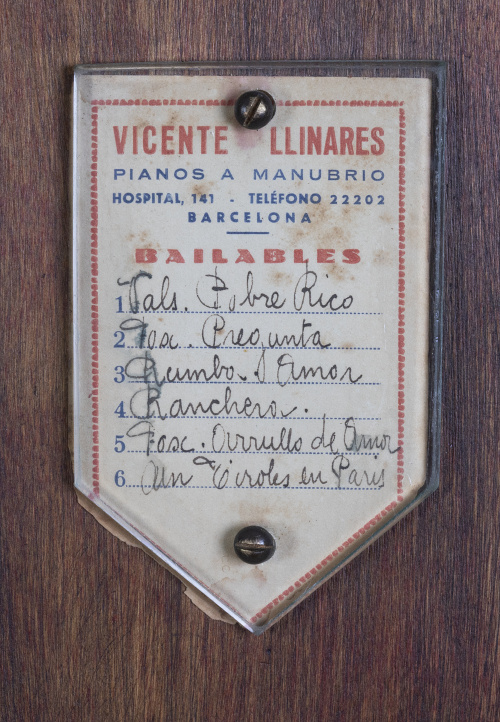 VICENTE LLINARES
PIANOS A MANUBRIO
HOSPITAL, 141 - TELÉFONO 22202
BARCELONA
BAILABLES
1 Vals. Pobre Rico
2 Fox. Pregunta
3 Rumba. d'Amor
4 Ranchera.
5 Fox. Arrullo de Amor
6 Un Tiroles en Paris